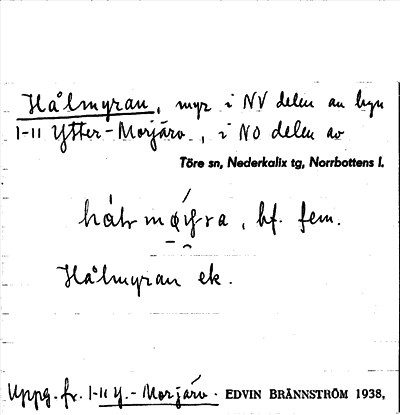 Hålmyran, myr i NV delen av byn
1-11 Ytter-Morjärv, i NO delen av
Töre sn, Nederkalix tg, Norrbottens l.
bf. fem.
Hålmyran ek.
Uppg. fr. 1-11 Y.-Morjärv. EDVIN BRÄNNSTRÖM 1938,